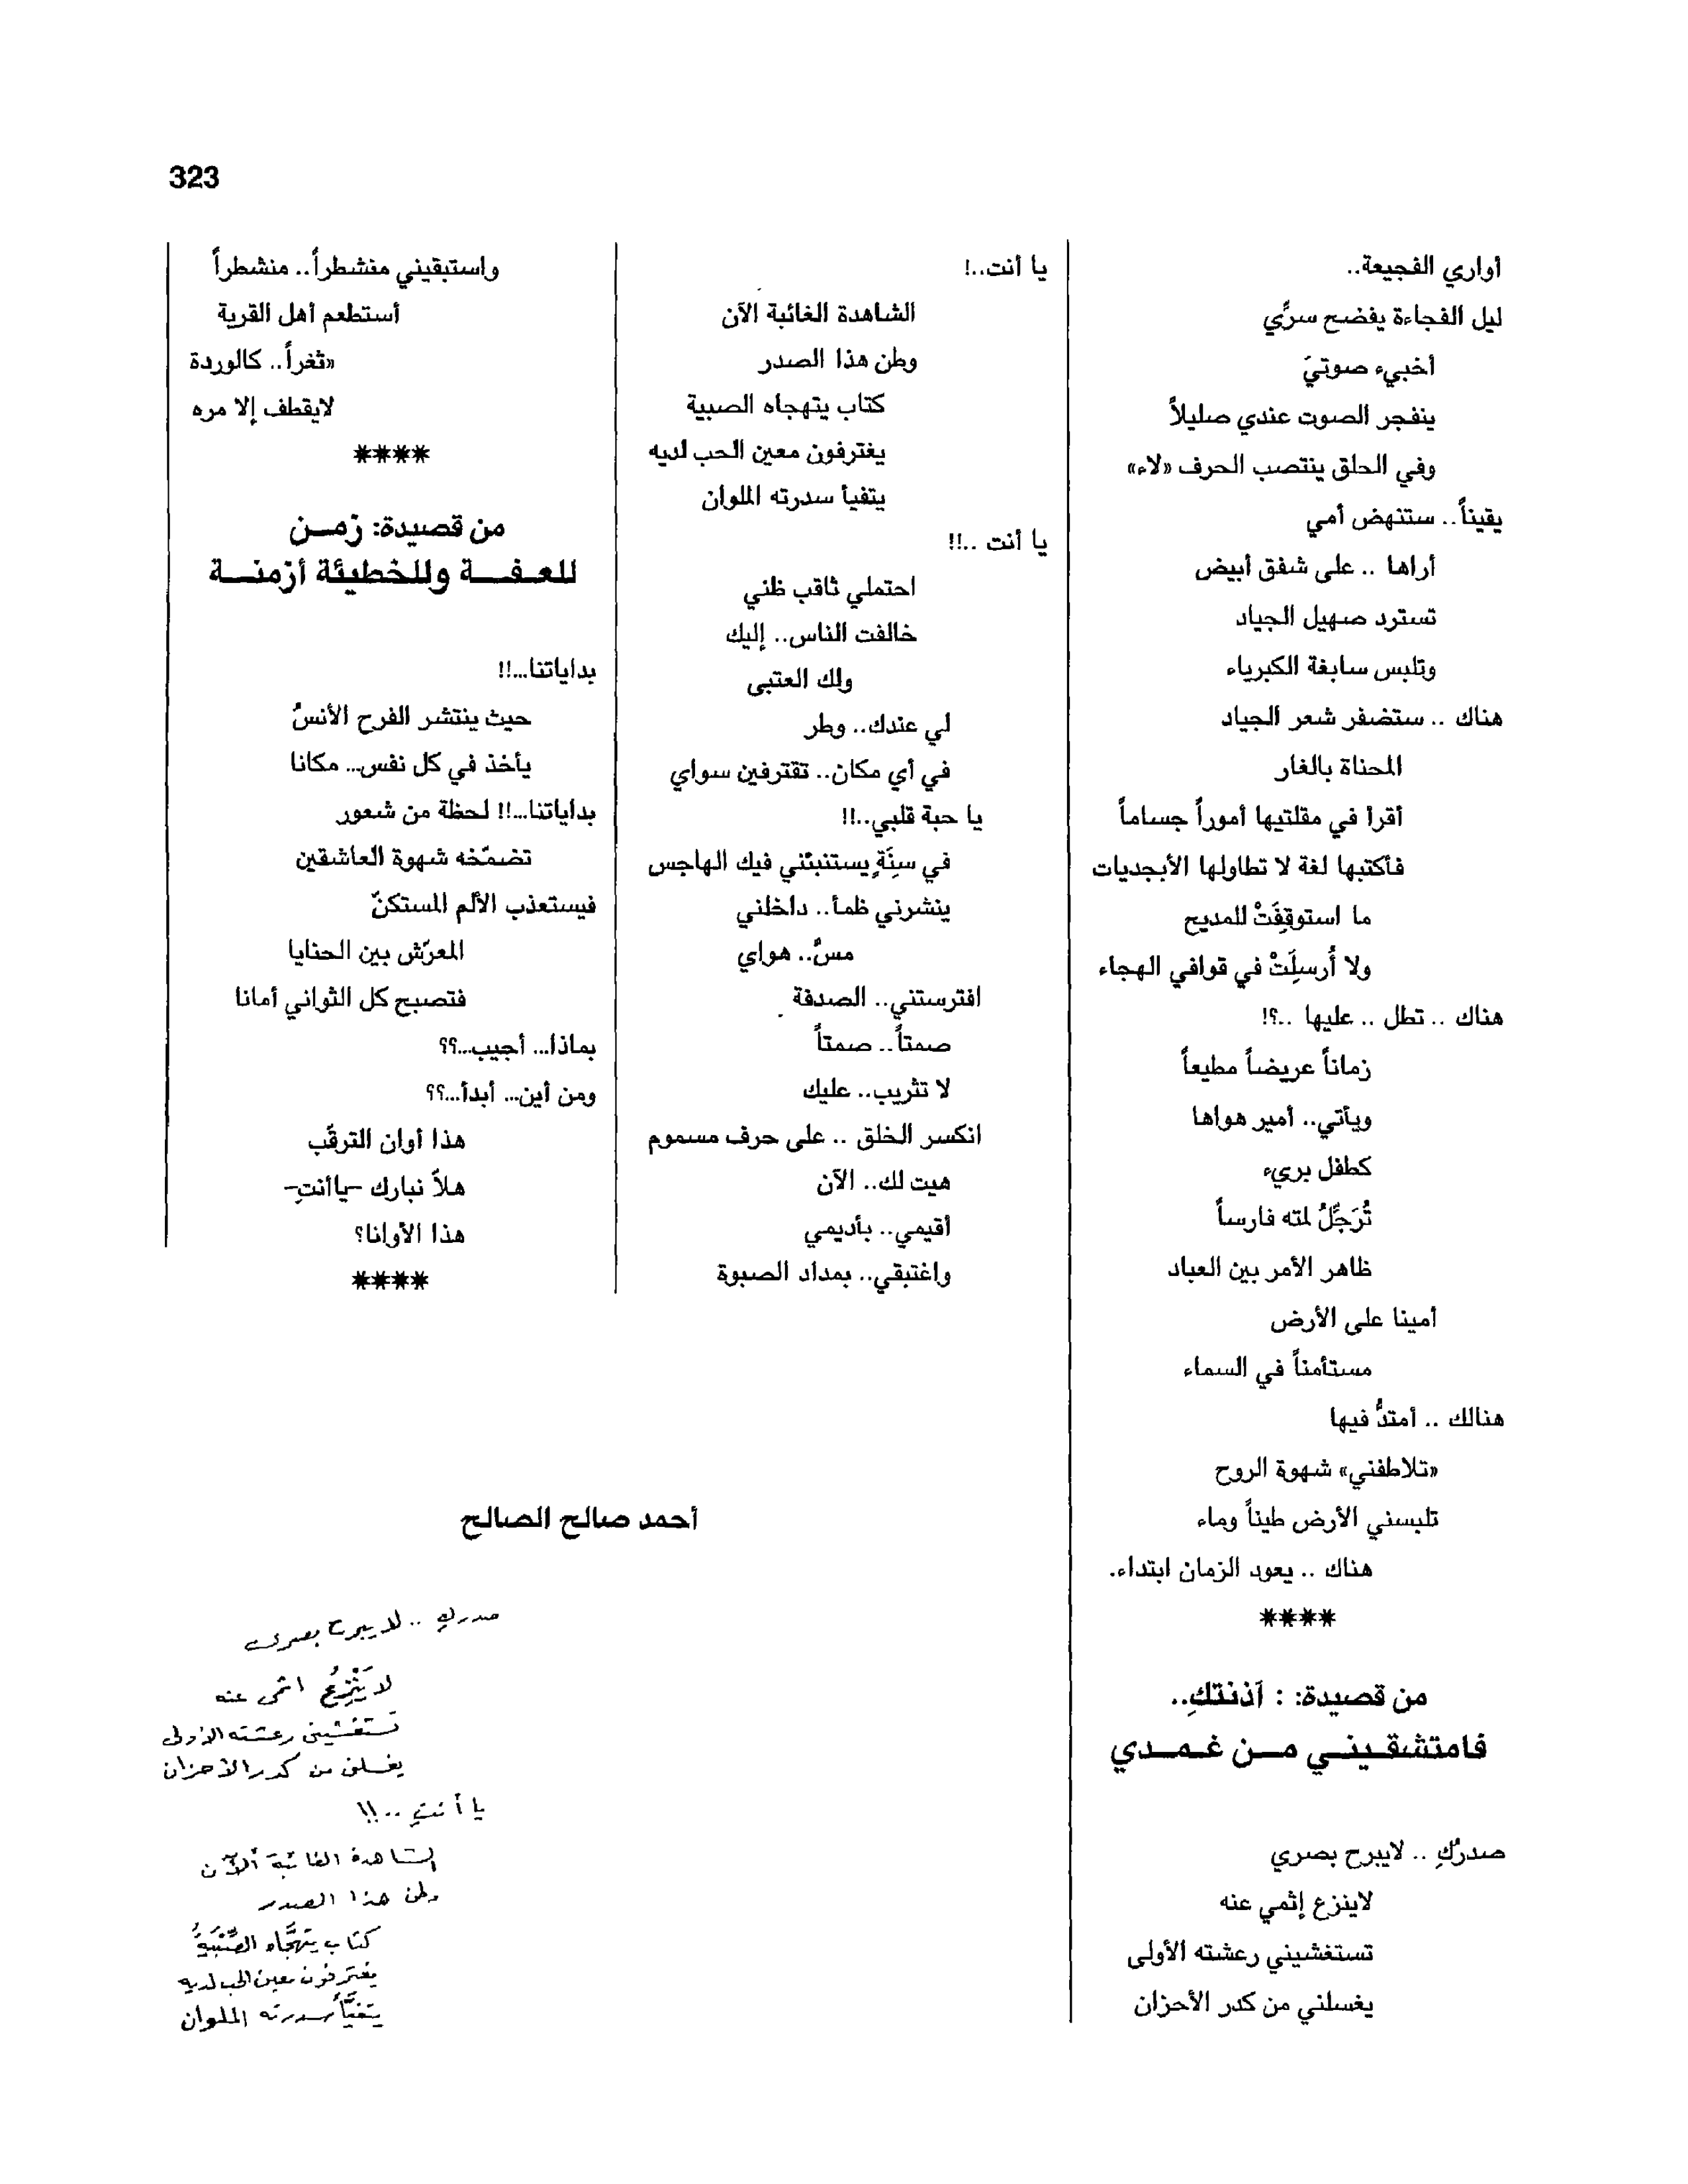 323
أواري الفجيعة..
ليل الفجاءة يفضح سرِّي
أخبيء صوتيَ
ينفجر الصوت عندي صليلاً
وفي الحلق ينتصب الحرف «لاء»
يقيناً.. ستنهض أمي
أراها .. على شفق أبيض
تسترد صهيل الجياد
وتلبس سابغة الكبرياء
هناك .. ستضفر شعر الجياد
المحناة بالغار
أقرأ في مقلتيها أموراً جساماً
فأكتبها لغة لا تطاولها الأبجديات
ما استوقِفَتْ للمديح
ولا أُرسِلَتْ في قوافي الهجاء
هناك .. تطل .. عليها ..؟!
زماناً عريضاً مطيعاً
ويأتي.. أمير هواها
كطفل بريء
تُرَجِّلُ لمته فارساً
ظاهر الأمر بين العباد
أمينا على الأرض
مستأمناً في السماء
هنالك .. أمتدُّ فيها
«تلاطفني» شهوة الروح
تلبسني الأرض طيناً وماء
هناك .. يعود الزمان ابتداء.
****
من قصيدة: : آذنتكِ..
فامتشقيني من غمدي
صدركِ .. لايبرح بصري
لاينزع إثمي عنه
تستغشيني رعشته الأولى
يغسلني من كدر الأحزان
يا أنت..!
الشاهدة الغائبة الآن
وطن هذا الصدر
كتاب يتهجاه الصبية
يغترفون معين الحب لديه
يتفيأ سدرته الملوان
يا أنت ..!!
احتملي ثاقب ظني
خالفت الناس.. إليك
ولك العتبى
لي عندك.. وطر
في أي مكان.. تقترفين سواي
يا حبة قلبي..!!
في سِنَةٍ يستنبئني فيك الهاجس
ينشرني ظمأ.. داخلني
مسٌّ.. هواي
افترستني.. الصدفة
صمتاً.. صمتاً
لا تثريب.. عليك
انكسر الخلق .. على حرف مسموم
هيت لك.. الآن
أقيمي.. بأديمي
واغتبقي.. بمداد الصبوة
واستبقيني منشطراً.. منشطراً
أستطعم أهل القرية
«ثغراً.. كالوردة
لايقطف إلا مره
****
من قصيدة: زمن
للعفة وللخطيئة أزمنة
بداياتنا...!!
حيث ينتشر الفرح الأنسُ
يأخذ في كل نفس... مكانا
بداياتنا...!! لحظة من شعور
تضمّخه شهوة العاشقين
فيستعذب الألم المستكنّ
المعرّش بين الحنايا
فتصبح كل الثواني أمانا
بماذا... أجيب...؟؟
ومن أين... أبدأ...؟؟
هذا أوان الترقّب
هلاّ نبارك -ياأنتِ-
هذا الأوانا؟
****
أحمد صالح الصالح
صدركِ .. لا يبرح بصري
لا يَنْزِعُ اثمي عنه
تستغشيني رعشته الأولى
يغسلني من كدر الأحزان
يا أنتِ ..!!
الشاهدة الغائبة الآن
وطن هذا الصدر
كتاب يتهجَّاه الصِّبْيَةُ
يغترفون معين الحب لديه
يتفيَّأ سدرته الملوان